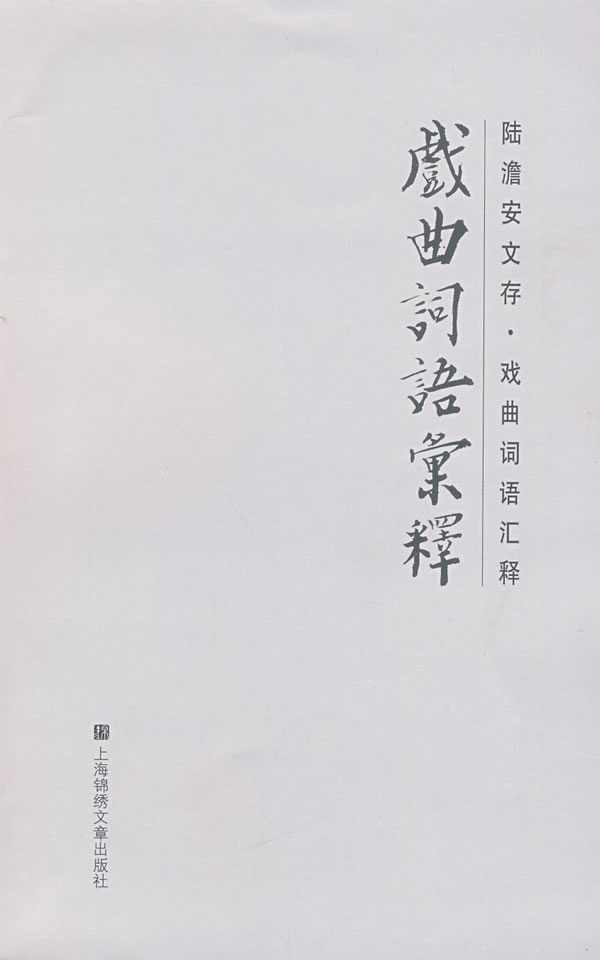 陆澹安文存·戏曲词语汇释
戲曲詞語彙釋
上海锦绣文章出版社